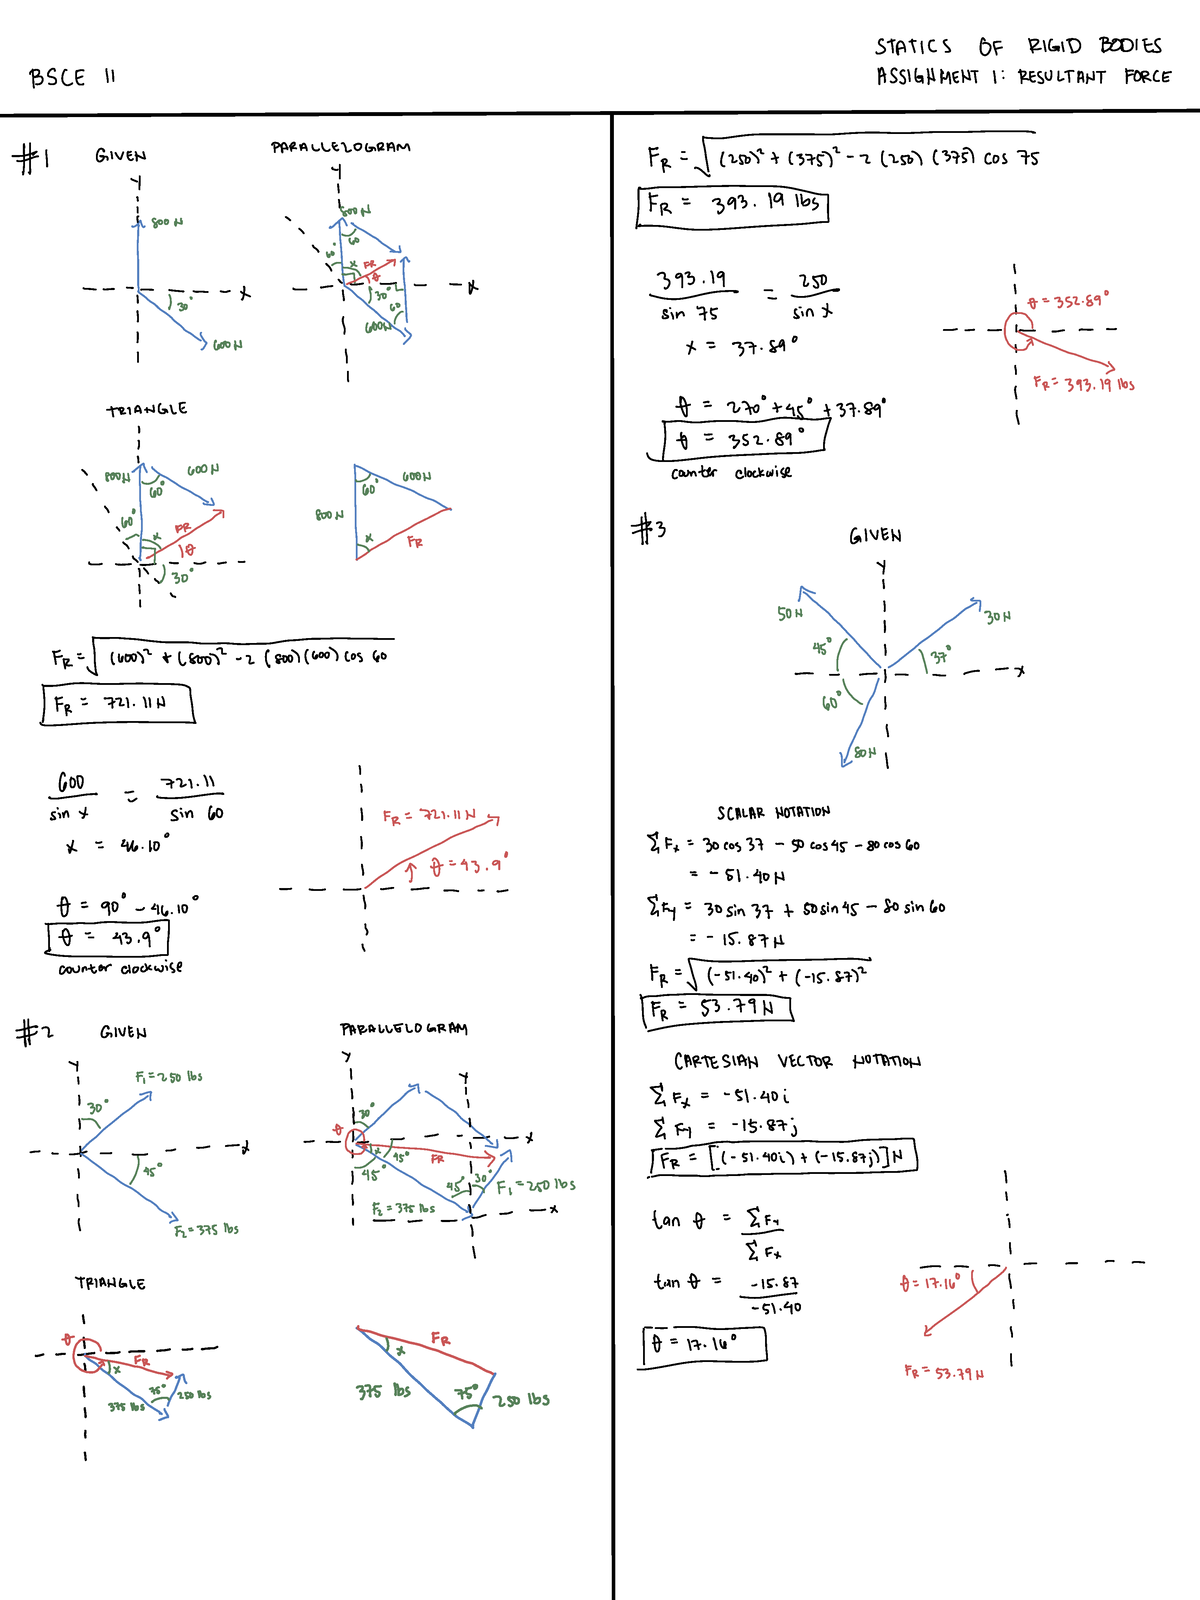 BSCE 11
STATICS OF RIGID BODIES
ASSIGNMENT 1: RESULTANT FORCE
#1
GIVEN
Y
800 N
X
30°
600 N
PARALLELOGRAM
Y
800 N
60
60°
x
FR
θ
X
30°
60
600N
TRIANGLE
800N
60°
600N
60°
x
FR
θ
30°
60°
600N
800N
x
FR
FR = √(600)² + (800)² - 2 (800)(600) cos 60
FR = 721.11 N
600 / sin x = 721.11 / sin 60
x = 46.10°
θ = 90° - 46.10°
θ = 43.9°
counter clockwise
FR = 721.11 N
θ = 43.9°
#2
GIVEN
Y
F1 = 250 lbs
30°
X
45°
F2 = 375 lbs
PARALLELOGRAM
Y
Y
30°
θ
X
x
45°
FR
45°
45°
30°
F1 = 250 lbs
F2 = 375 lbs
X
TRIANGLE
θ
FR
x
75°
250 lbs
375 lbs
FR
x
375 lbs
75°
250 lbs
FR = √(250)² + (375)² - 2 (250) (375) cos 75
FR = 393.19 lbs
393.19 / sin 75 = 250 / sin x
x = 37.89°
θ = 270° + 45° + 37.89°
θ = 352.89°
counter clockwise
θ = 352.89°
FR = 393.19 lbs
#3
GIVEN
Y
50 N
30 N
45°
37°
X
60°
80 N
SCALAR NOTATION
ΣFx = 30 cos 37 - 50 cos 45 - 80 cos 60
= -51.40 N
ΣFy = 30 sin 37 + 50 sin 45 - 80 sin 60
= -15.87 N
FR = √(-51.40)² + (-15.87)²
FR = 53.79 N
CARTESIAN VECTOR NOTATION
ΣFx = -51.40 i
ΣFy = -15.87 j
FR = [(-51.40i) + (-15.87j)] N
tan θ = ΣFy / ΣFx
tan θ = -15.87 / -51.40
θ = 17.16°
θ = 17.16°
FR = 53.79 N